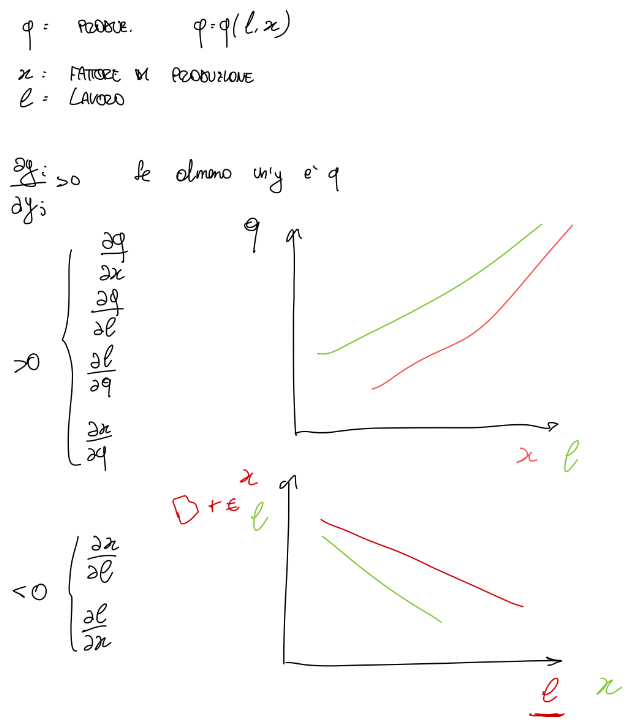 q = PRODUZ. q = q(l, x)
x = FATTORE DI PRODUZIONE
l = LAVORO
∂yᵢ/∂yⱼ > 0 se almeno un'y è q
q
>0 { ∂q/∂x
∂q/∂l
∂l/∂q
∂x/∂q
x l
x
+ € l
<0 { ∂x/∂l
∂l/∂x
l x